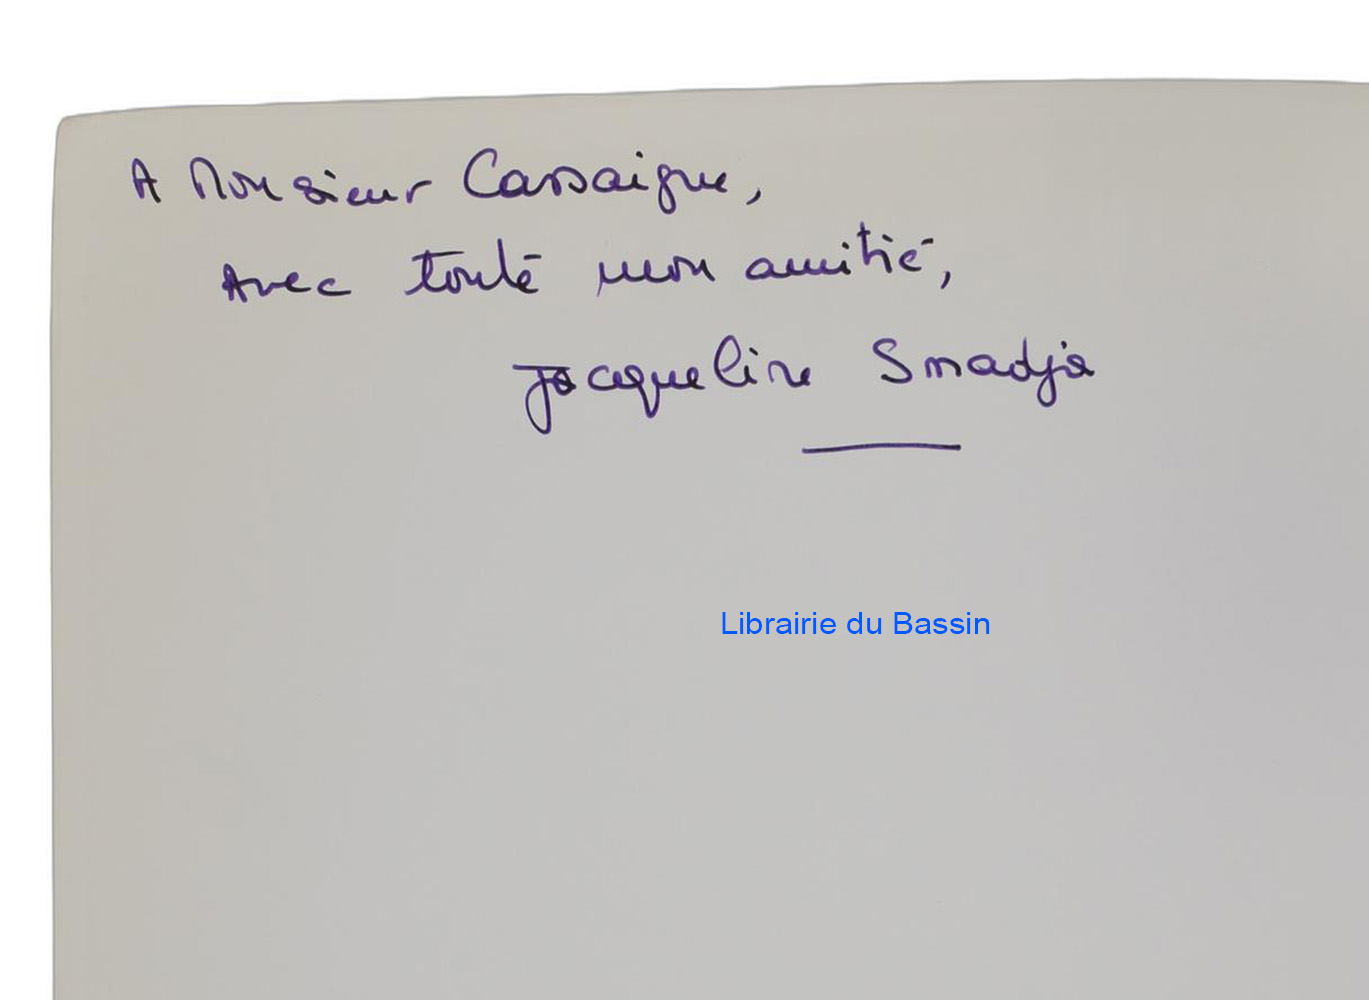 A Monsieur Cassaigne,
Avec toute mon amitié,
Jacqueline Smadja
Librairie du Bassin